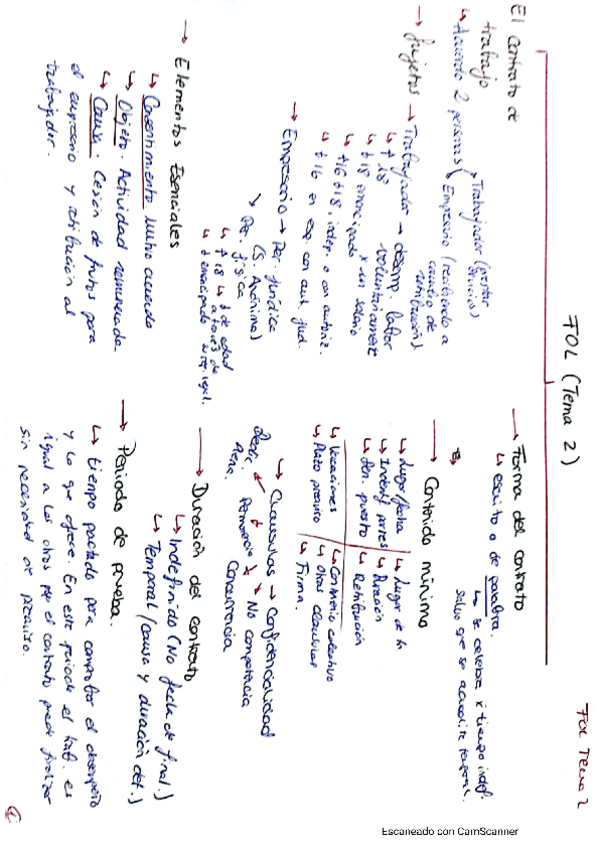 FOL Tema 2
FOL (Tema 2)
El contrato de
trabajo
↳ Acuerdo 2 personas
Trabajador (prestar
servicio)
Empresario (recibiendo a
cambio de
retribución).
→ Sujetos → Trabajador → desemp. labor
voluntariamente
x un salario
↳ +18
↳ +18 emancipado
↳ +16 -18, indep. o con autoriz.
↳ -16 en esp. con aut. jud.
Empresario → Per. jurídica
(S. Anónima)
↘ Per. física
↳ +18 ↳ - de edad
a través de
repr. legal.
↳ emancipado
→ Elementos Esenciales
↳ Consentimiento. Mutuo acuerdo
↳ Objeto. Actividad remunerada.
↳ Causa. Cesión de frutos para
el empresario y retribución al
trabajador.
→ Forma del contrato
↳ escrito o de palabra.
↳ se celebra x tiempo indef.
salvo que se acredite temporal.
→ Contenido mínimo
↳ Lugar/fecha
↳ Identif partes
↳ Den. puesto
↳ Vacaciones
↳ Plazo preaviso
↳ Lugar de
↳ Duración
↳ Retribución
↳ Convenio colectivo
↳ Otras clausulas
↳ Firma.
↳ Clausulas → Confidencialidad
↳ No competencia
Permanencia
Concurrencia
→ Duración del contrato
↳ Indefinido (No fecha de final.)
↳ Temporal (causa y duración det.)
→ Periodo de prueba.
↳ tiempo pactado para comprobar el desempeño
y lo que ofrece. En este periodo el trab. es
igual a los otros pero el contrato puede finalizar
sin necesidad de preaviso.
①
Escaneado con CamScanner